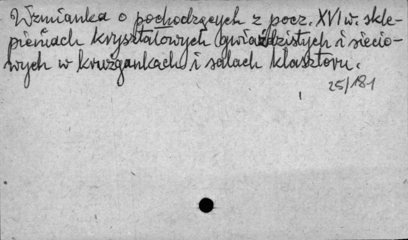 Wzmianka o pochodzących z pocz. XVI w. skle-
pieniach kryształowych gwiaździstych i siecio-
wych w krużgankach i salach klasztoru.
25/181